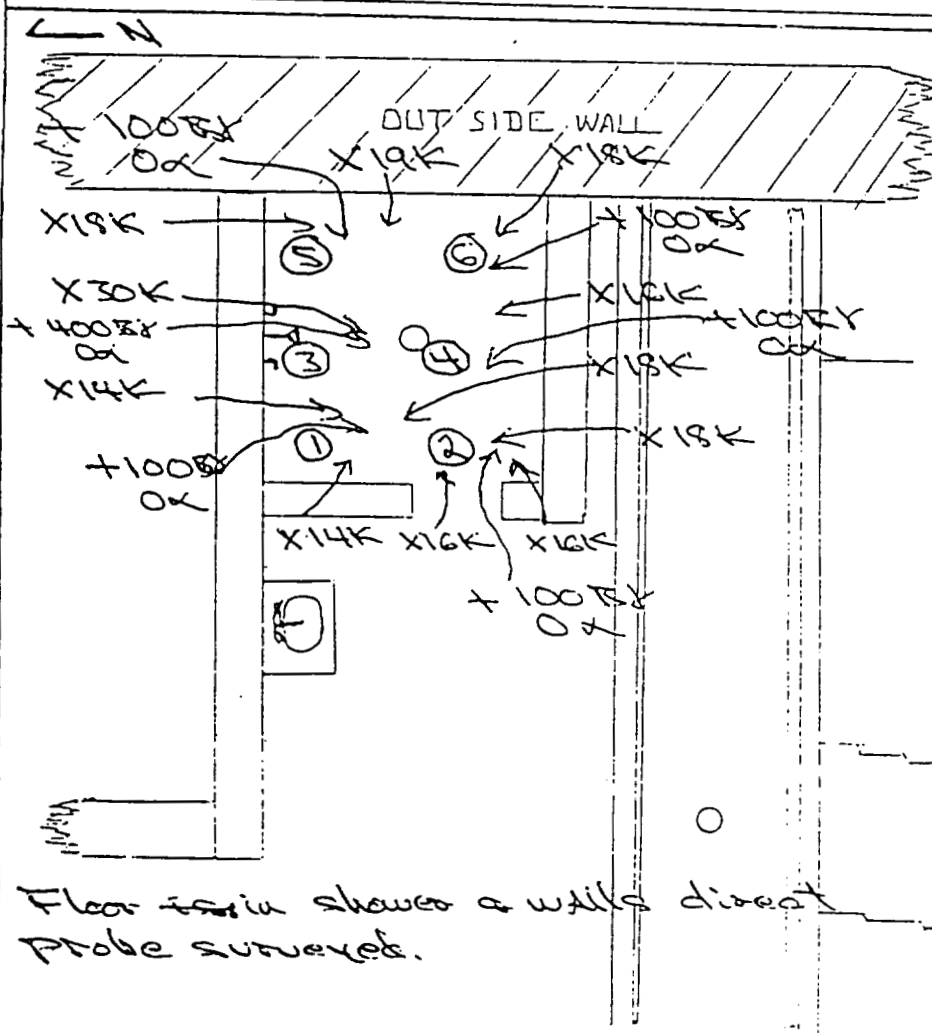 N
OUT SIDE WALL
+ 100 βγ
0α
X19K
X18K
X18K
⑤
⑥
+ 100 βγ
0α
X30K
X16K
+ 400 βγ
0α
③
④
+100 βγ
0α
X18K
X14K
①
②
X18K
+100 βγ
0α
X14K
X16K
X16K
+ 100 βγ
0α
Floor in shower & walls direct
probe surveyed.